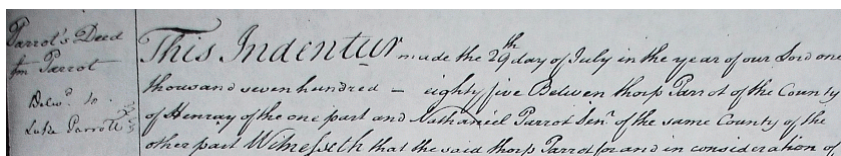 Parrot's Deed
fm Parrot
Delivd to
Luke Parrott
This Indentur made the 29th day of July in the year of our Lord one
thousand seven hundred — eighty five Between thorp Parrot of the County
of Henray of the one part and Nathaniel Parrot Senr of the same County of the
other part Witnesseth that the said thorp Parrot for and in consideration of